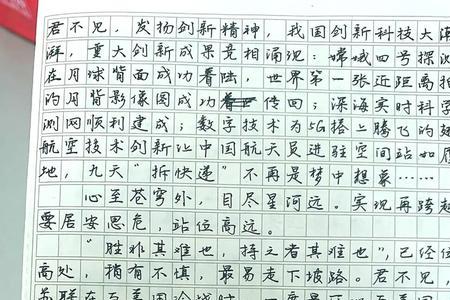 君不见，发扬创新精神，我国创新科技大
湃，重大创新成果竞相涌现：嫦娥四号探测
在月球背面成功着陆，世界第一张近距离拍
的月背影像图成功传回；深海实时科学
测网顺利建成；数字技术为5G搭上腾飞的翅
航空技术创新让中国航天员进驻空间站如履
地，九天“拆快递”不再是梦中想象……
心至苍穹外，目尽星河远。实现再跨越
要居安思危，站位高远。
“胜非其难也，持之者其难也”，已经位
高处，稍有不慎，最易走下坡路。君不见，
苏联在与美国冷战时，一度